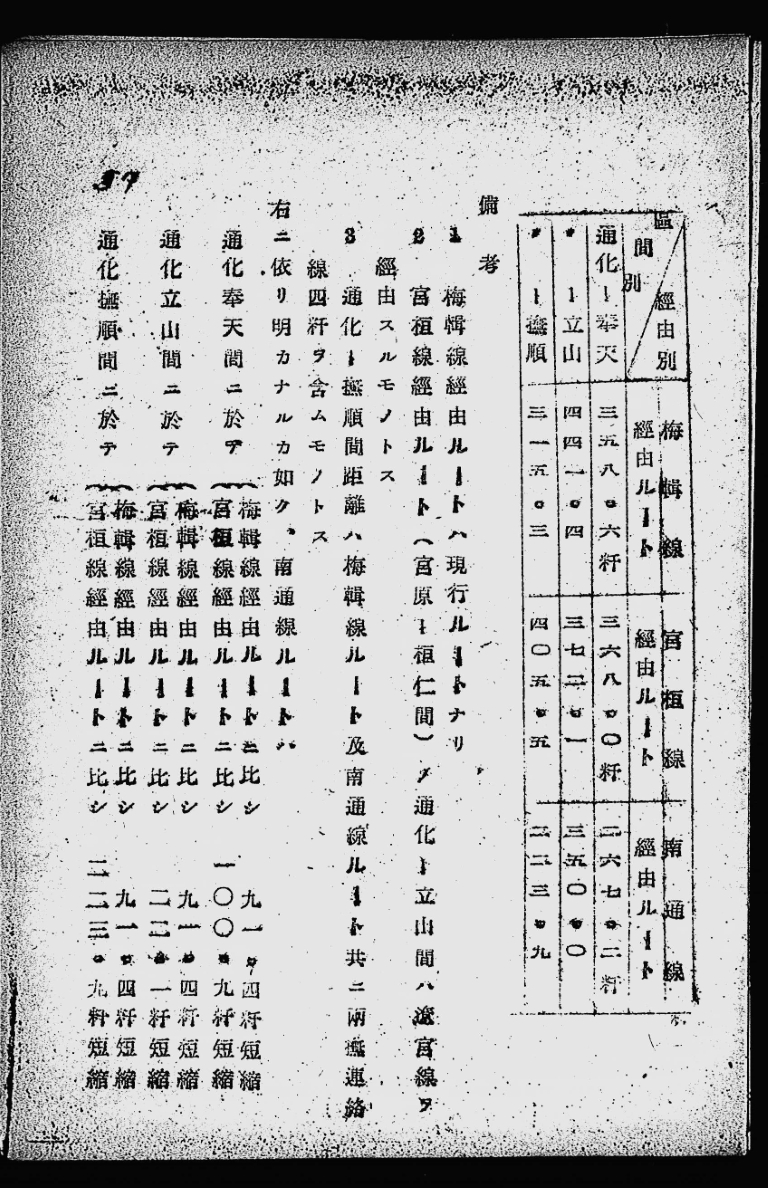 區間別 經由別
梅輯線經由ルート
宮桓線經由ルート
南通線經由ルート
通化ー奉天 三五八・六粁 三六八・〇粁 二六七・二粁
〃 ー立山 四四一・四 三七二・一 三五〇・〇
〃 ー撫順 三一五・三 四〇五・五 二二三・九
備考
1 梅輯線經由ルートハ現行ルートナリ
2 宮桓線經由ルート（宮原ー桓仁間）ノ通化ー立山間ハ遼宮線ヲ
經由スルモノトス
3 通化ー撫順間距離ハ梅輯線ルート及南通線ルート共ニ兩撫連絡
線四粁ヲ含ムモノトス
右ニ依リ明カナルカ如ク、南通線ルートハ
通化奉天間ニ於テ
梅輯線經由ルートニ比シ 九一・四粁短縮
宮桓線經由ルートニ比シ 一〇〇・九粁短縮
通化立山間ニ於テ
梅輯線經由ルートニ比シ 九一・四粁短縮
宮桓線經由ルートニ比シ 二二・一粁短縮
通化撫順間ニ於テ
梅輯線經由ルートニ比シ 九一・四粁短縮
宮桓線經由ルートニ比シ 二二三・九粁短縮